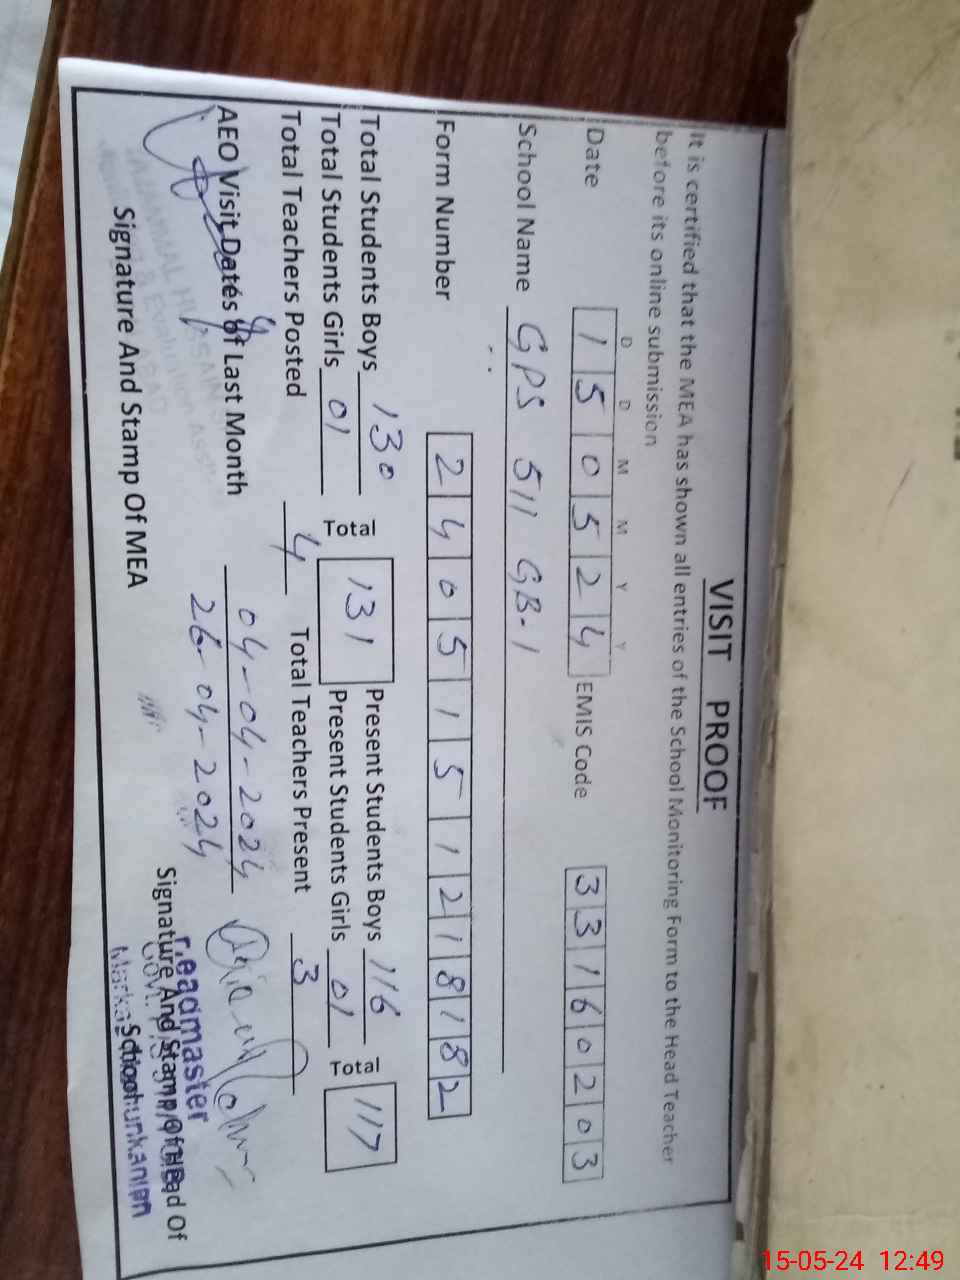 VISIT PROOF
It is certified that the MEA has shown all entries of the School Monitoring Form to the Head Teacher
before its online submission
D D M M Y Y
Date 1 5 0 5 2 4 EMIS Code 3 3 1 6 0 2 0 3
School Name GPS 511 GB-1
Form Number 2 4 0 5 1 5 1 2 1 8 1 8 2
Total Students Boys 130 Total 131 Present Students Boys 116 Total 117
Total Students Girls 01 Present Students Girls 01
Total Teachers Posted 4 Total Teachers Present 3
AEO Visit Dates of Last Month 04-04-2024
26-04-2024
Signature And Stamp Of MEA
Signature And Stamp Of Head Of
School
Headmaster
15-05-24 12:49